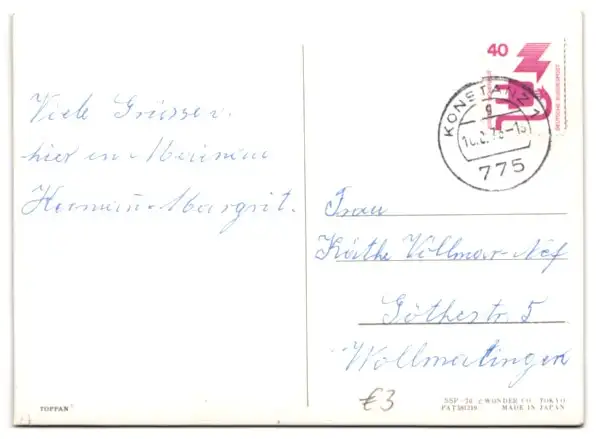 Viele Grüsse v.
hier en
Hermann Margrit.
40
DEUTSCHE BUNDESPOST
KONSTANZ 1
775
Frau
Käthe Vollmar-Nef
Göthestr. 5
Wollmatingen
€3
TOPPAN
SSP © WONDER CO. TOKYO
MADE IN JAPAN